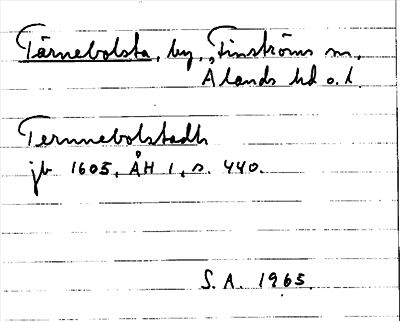 Tärnebolsta, by, Finströms sn,
Ålands hd o. l.
Ternnebolstadh
jb 1605, ÅH 1, s. 440.
S. A. 1965.